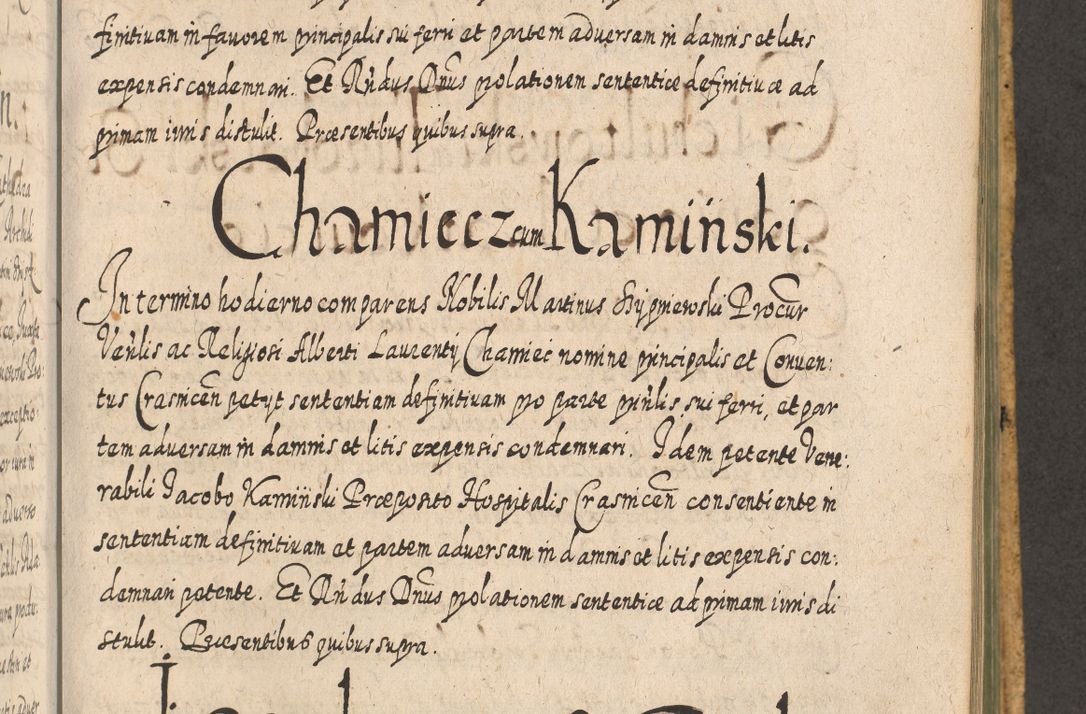 finitivam in favorem principalis sui ferri et partem adversam in damnis et litis
expensis condemnari. Et Rndus Dnus prolationem sententiæ definitivæ ad
primam iuris distulit. Præsentibus quibus supra.
Chamiecz cum Kamiński.
In termino hodierno comparens Nobilis Martinus Procur
Venlis ac Religiosi Alberti Laurentij Chamiec nomine principalis et Conven:
tus Crasnicen petijt sententiam definitivam pro parte prinlis sui ferri, et par
tem adversam in damnis et litis expensis condemnari. Idem petente Vene:
rabili Jacobo Kamiński Præposito Hospitalis Crasnicen consentiente in
sententiam definitivam et partem adversam in damnis et litis expensis con:
demnari petente. Et Rndus Dnus prolationem sententiæ ad primam iuris di
stulit. Præsentibus quibus supra.